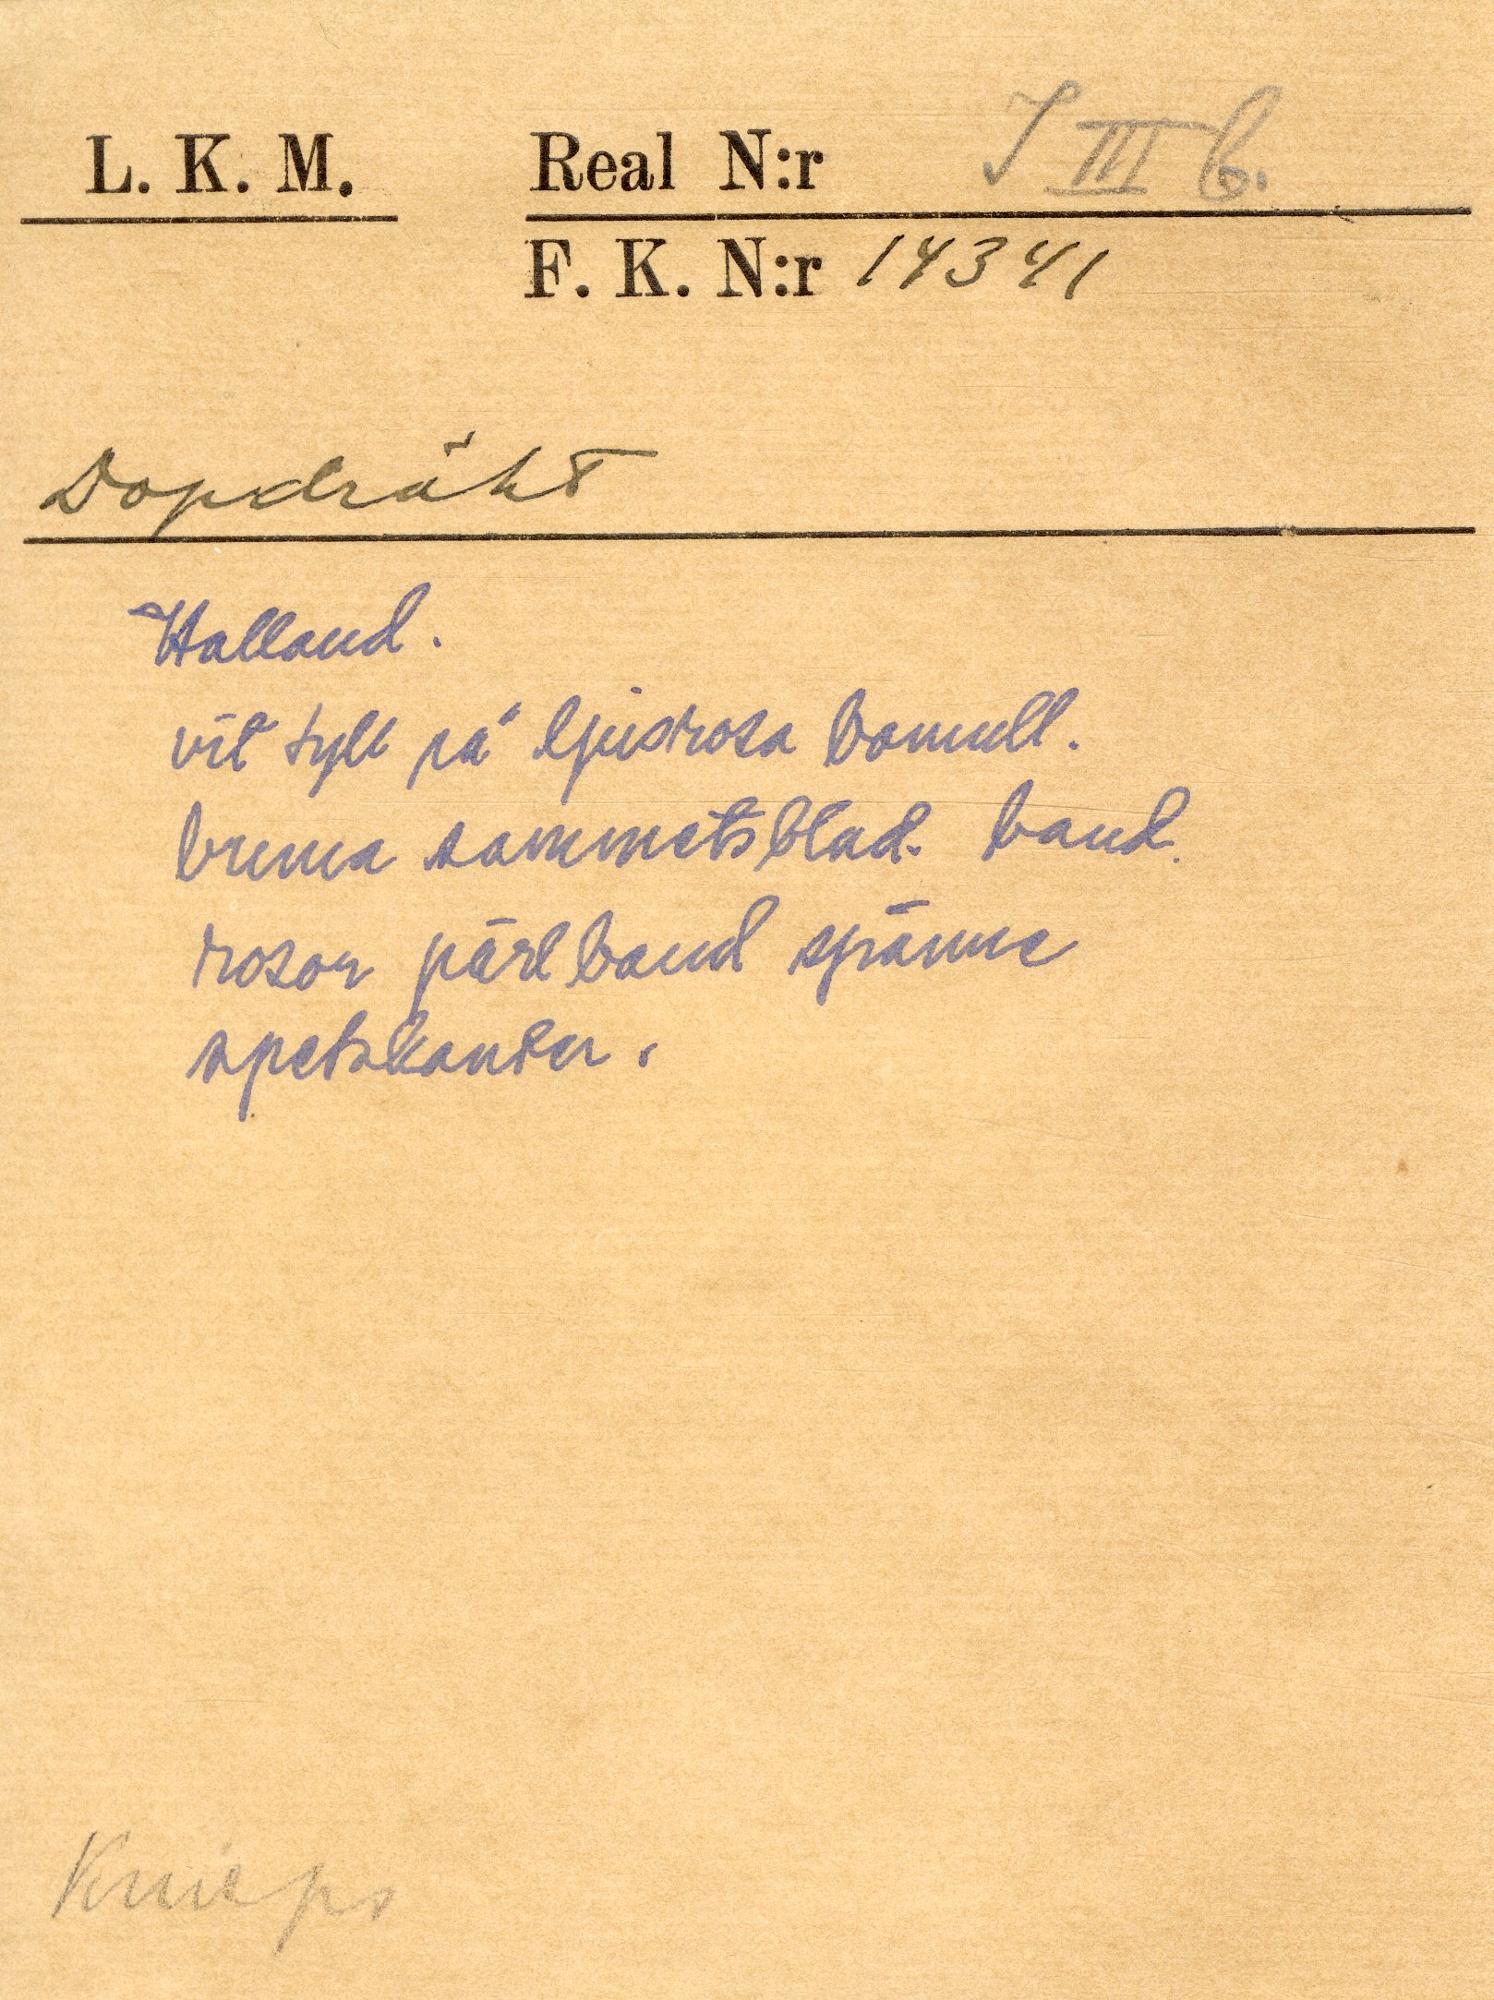 L. K. M. Real N:r I III b.
F. K. N:r 14341
Dopdräkt
Halland.
vit tyll på ljusrosa bomull.
bruna sammetsblad. band.
rosor pärlband spänne
spetskanter.
Knieps